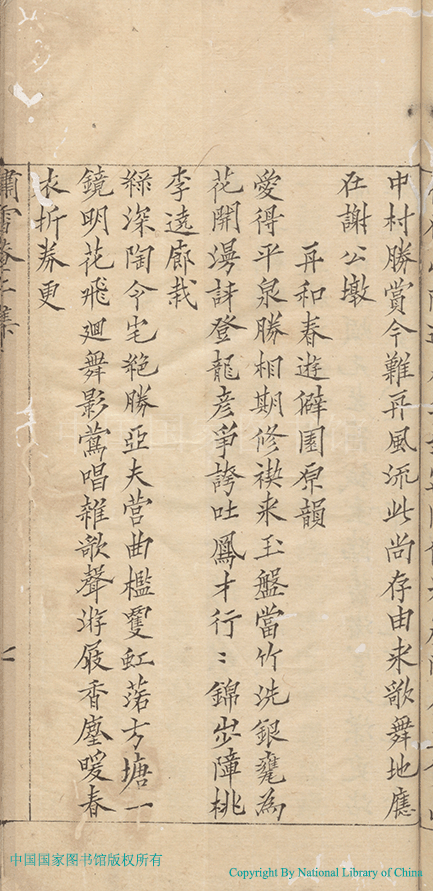 中村勝賞今難再風流此尚存由来歌舞地應
在謝公墩
再和春遊僻園原韻
愛得平泉勝相期修禊来玉盤當竹洗銀甕為
花開漫訝登龍彦爭誇吐鳳才行〻錦步障桃
李遶廊栽
綠深陶令宅絶勝亞夫营曲檻雙虹落方塘一
鏡明花飛廻舞影鶯唱雜歌聲游屐香塵暖春
衣折券更
嘯雪菴
中国国家图书馆版权所有
Copyright By National Library of China